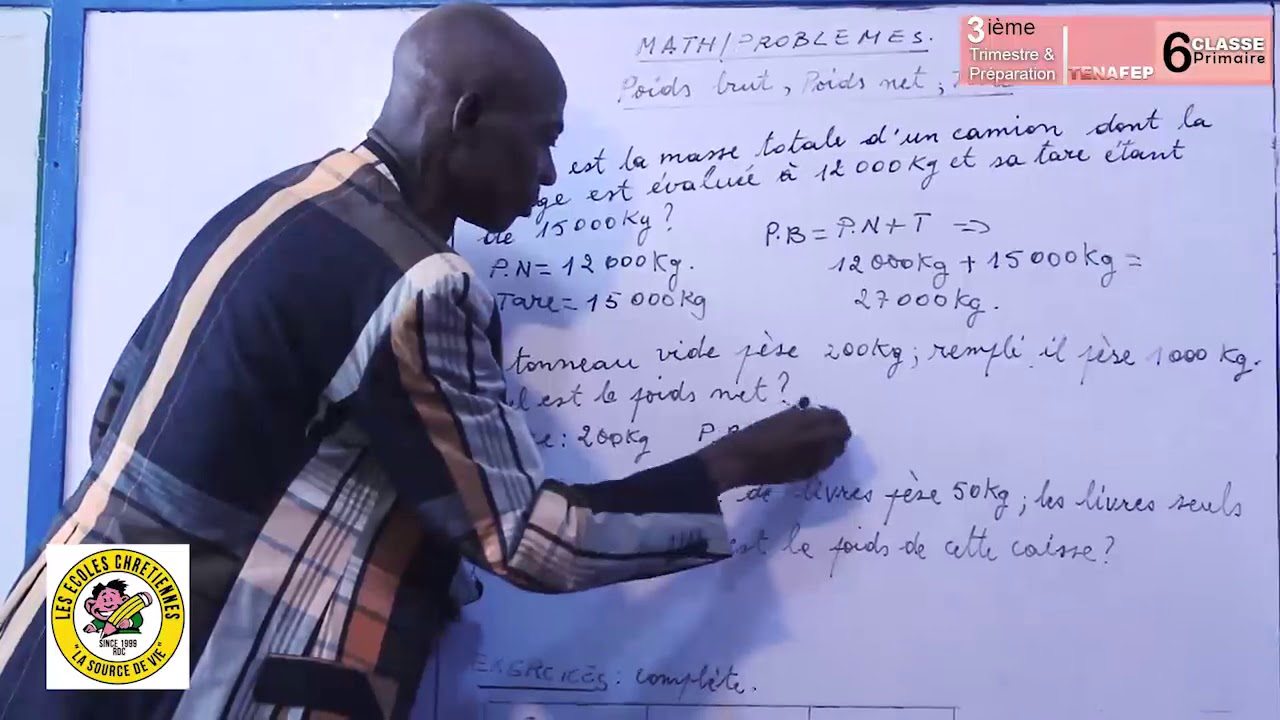 MATH/PROBLEMES.
Poids brut, Poids net,
est la masse totale d'un camion dont la
ge est évaluée à 12 000 Kg et sa tare étant
de 15 000 Kg?
P.N = 12 000 Kg.
Tare = 15 000 Kg
P.B = P.N + T ⇒
12 000 Kg + 15 000 Kg =
27 000 Kg.
tonneau vide pèse 200 Kg; rempli il pèse 1 000 Kg.
est le poids net?
: 200 Kg
de livres pèse 50 Kg; les livres seuls
est le poids de cette caisse?
EXERCICES: complète.
3ième
Trimestre &
Préparation
TENAFEP
6 CLASSE
Primaire
LES ECOLES CHRETIENNES
SINCE 1999
RDC
"LA SOURCE DE VIE"